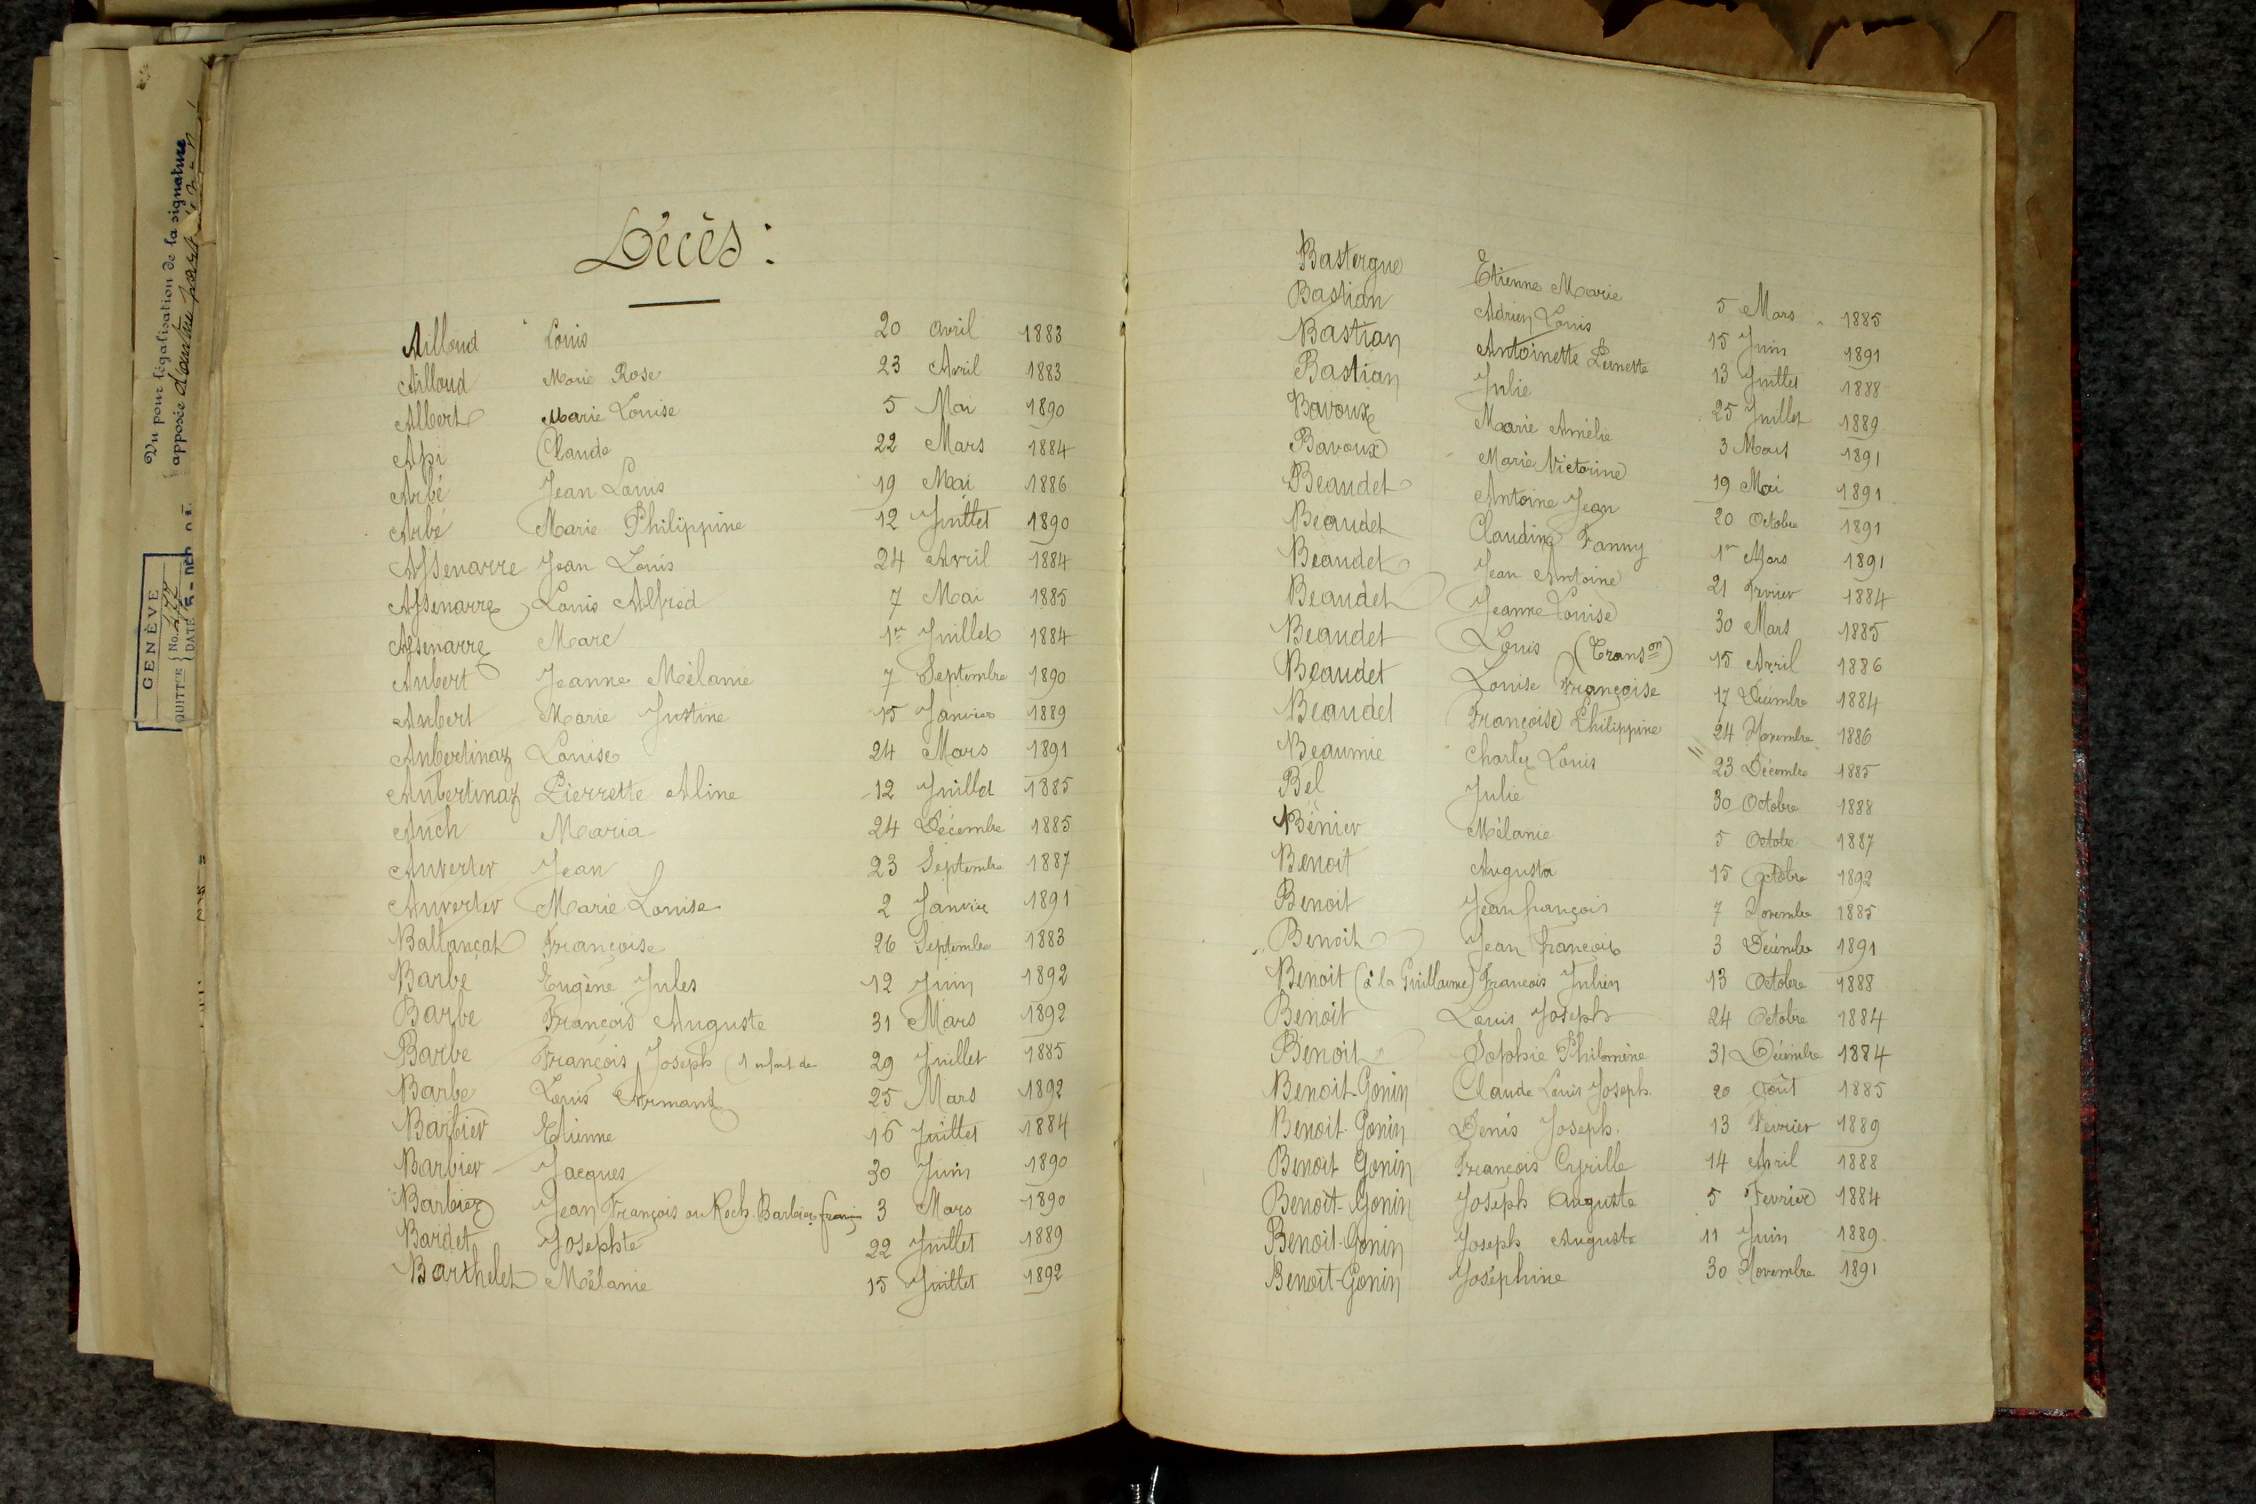 Vu pour légalisation de la signature
apposée d'autre part
GENÈVE
QUITTCE No.
DATE
Décès :
Ailloud Louis 20 avril 1883
Ailloud Marie Rose 23 Avril 1883
Albert Marie Louise 5 Mai 1890
Claude 22 Mars 1884
Arbé Jean Louis 19 Mai 1886
Arbé Marie Philippine 12 Juillet 1890
Assenarre Jean Louis 24 Avril 1884
Assenarre Louis Alfred 7 Mai 1885
Assenarre Marc 1er Juillet 1884
Aubert Jeanne Mélanie 7 Septembre 1890
Aubert Marie Justine 15 Janvier 1889
Aubertinaz Louise 24 Mars 1891
Aubertinaz Pierrette Aline 12 Juillet 1885
Auch Maria 24 Décembre 1885
Auverter Jean 23 Septembre 1887
Auverter Marie Louise 2 Janvier 1891
Ballançat Françoise 26 Septembre 1883
Barbe Eugène Jules 12 Juin 1892
Barbe François Auguste 31 Mars 1892
Barbe François Joseph (1 enfant de 29 Juillet 1885
Barbe Louis Armand 25 Mars 1892
Barbier Etienne 16 Juillet 1884
Barbier Jacques 30 Juin 1890
Barbier Jean François ou Roch Barbier 3 Mars 1890
Bardet Josephte 22 Juillet 1889
Barthelet Mélanie 15 Juillet 1892
Bastergue Etienne Marie 5 Mars 1885
Bastian Adrien Louis 15 Juin 1891
Bastian Antoinette 13 Juillet 1888
Bastian Julie 25 Juillet 1889
Bavoux Marie Amélie 3 Mars 1891
Bavoux Marie Victorine 19 Mai 1891
Beaudet Antoine Jean 20 Octobre 1891
Beaudet Claudine Fanny 1er Mars 1891
Beaudet Jean Antoine 21 Fevrier 1884
Beaudet Jeanne Louise 30 Mars 1885
Beaudet Louis (Transon) 15 Avril 1886
Beaudet Louise Françoise 17 Décembre 1884
Beaudet Françoise Philippine 24 Novembre 1886
Beaumie Charles Louis 23 Décembre 1885
Bel Julie 30 Octobre 1888
Bénier Mélanie 5 Octobre 1887
Benoit Augusta 15 Octobre 1892
Benoit Jean françois 7 Novembre 1885
Benoit Jean françois 3 Décembre 1891
Benoit (à la Guillaume) François Julien 13 Octobre 1888
Benoit Louis Joseph 24 Octobre 1884
Benoit Sophie Philomène 31 Décembre 1884
Benoit-Gonin Claude Louis Joseph. 20 Août 1885
Benoit-Gonin Denis Joseph. 13 Fevrier 1889
Benoit Gonin François Cyrille 14 Avril 1888
Benoit-Gonin Joseph Auguste 5 Fevrier 1884
Benoit-Gonin Joseph Auguste 11 Juin 1889
Benoit-Gonin Joséphine 30 Novembre 1891